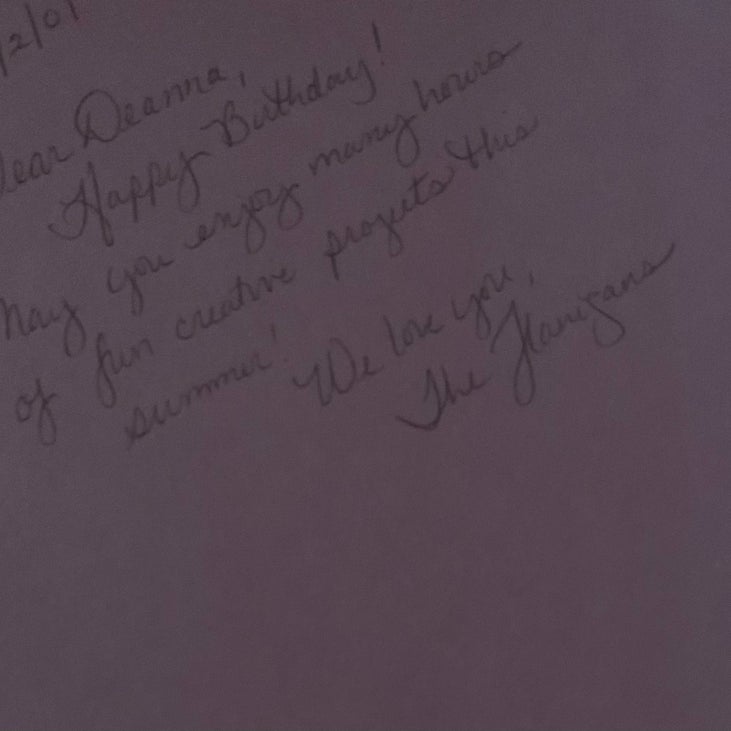 /2/01
Dear Deanna,
Happy Birthday!
May you enjoy many hours
of fun creative projects this
summer! We love you,
The Flanigans